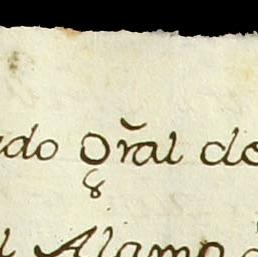 do Gral de
l Alamo